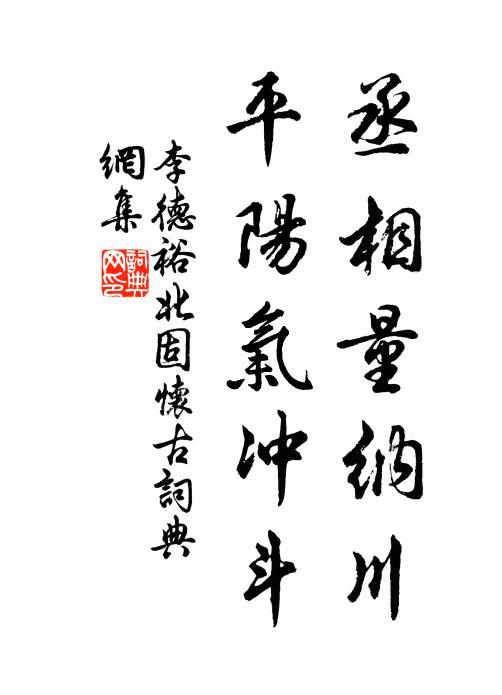 丞相量納川
平陽氣冲斗
李德裕北固懷古詞典
網集
詞典
网印